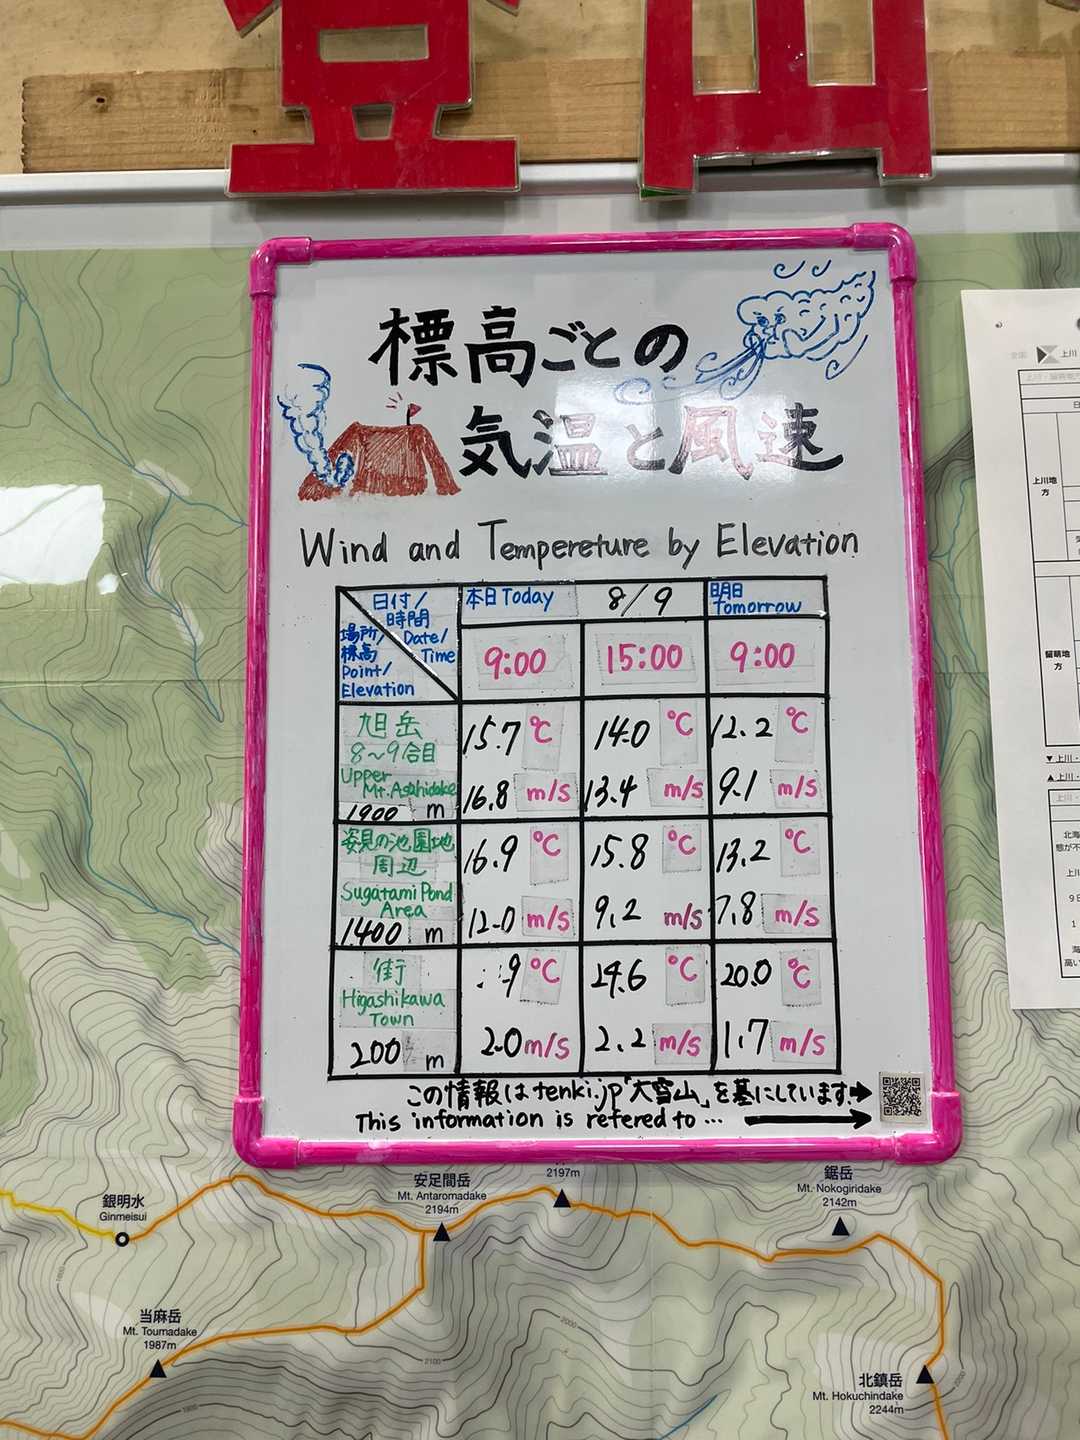 登山
標高ごとの
気温と風速
Wind and Tempereture by Elevation
日付/時間 Date/Time
場所/標高 Point/Elevation
本日Today 8/9 明日 Tomorrow
9:00 15:00 9:00
旭岳
8～9合目
Upper
Mt.Asahidake
1900 m
15.7℃ 14.0℃ 12.2℃
16.8 m/s 13.4 m/s 9.1 m/s
姿見の池園地
周辺
Sugatami Pond
Area
1400 m
16.9℃ 15.8℃ 13.2℃
12.0 m/s 9.2 m/s 7.8 m/s
街
Higashikawa
Town
200 m
9℃ 24.6℃ 20.0℃
2.0m/s 2.2 m/s 1.7 m/s
この情報はtenki.jp「大雪山」を基にしています➔
This information is refered to…
銀明水
Ginmeisui
安足間岳
Mt. Antaromadake
2194m
2197m
鋸岳
Mt. Nokogiridake
2142m
当麻岳
Mt. Toumadake
1987m
北鎮岳
Mt. Hokuchindake
2244m
2100
2000
1800
1900
全国
上川
上川地
方
留萌地
方
▼上川・
▲上川・
北海
態が不
上川
9日
1
海
高い